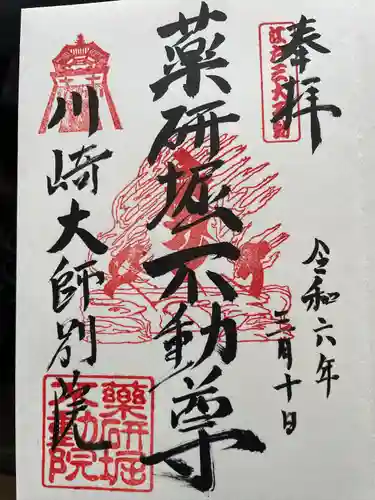 奉拝
江戸三大不動
令和六年
十二月十日
薬研堀不動尊
川崎大師別院
薬研堀
不動院